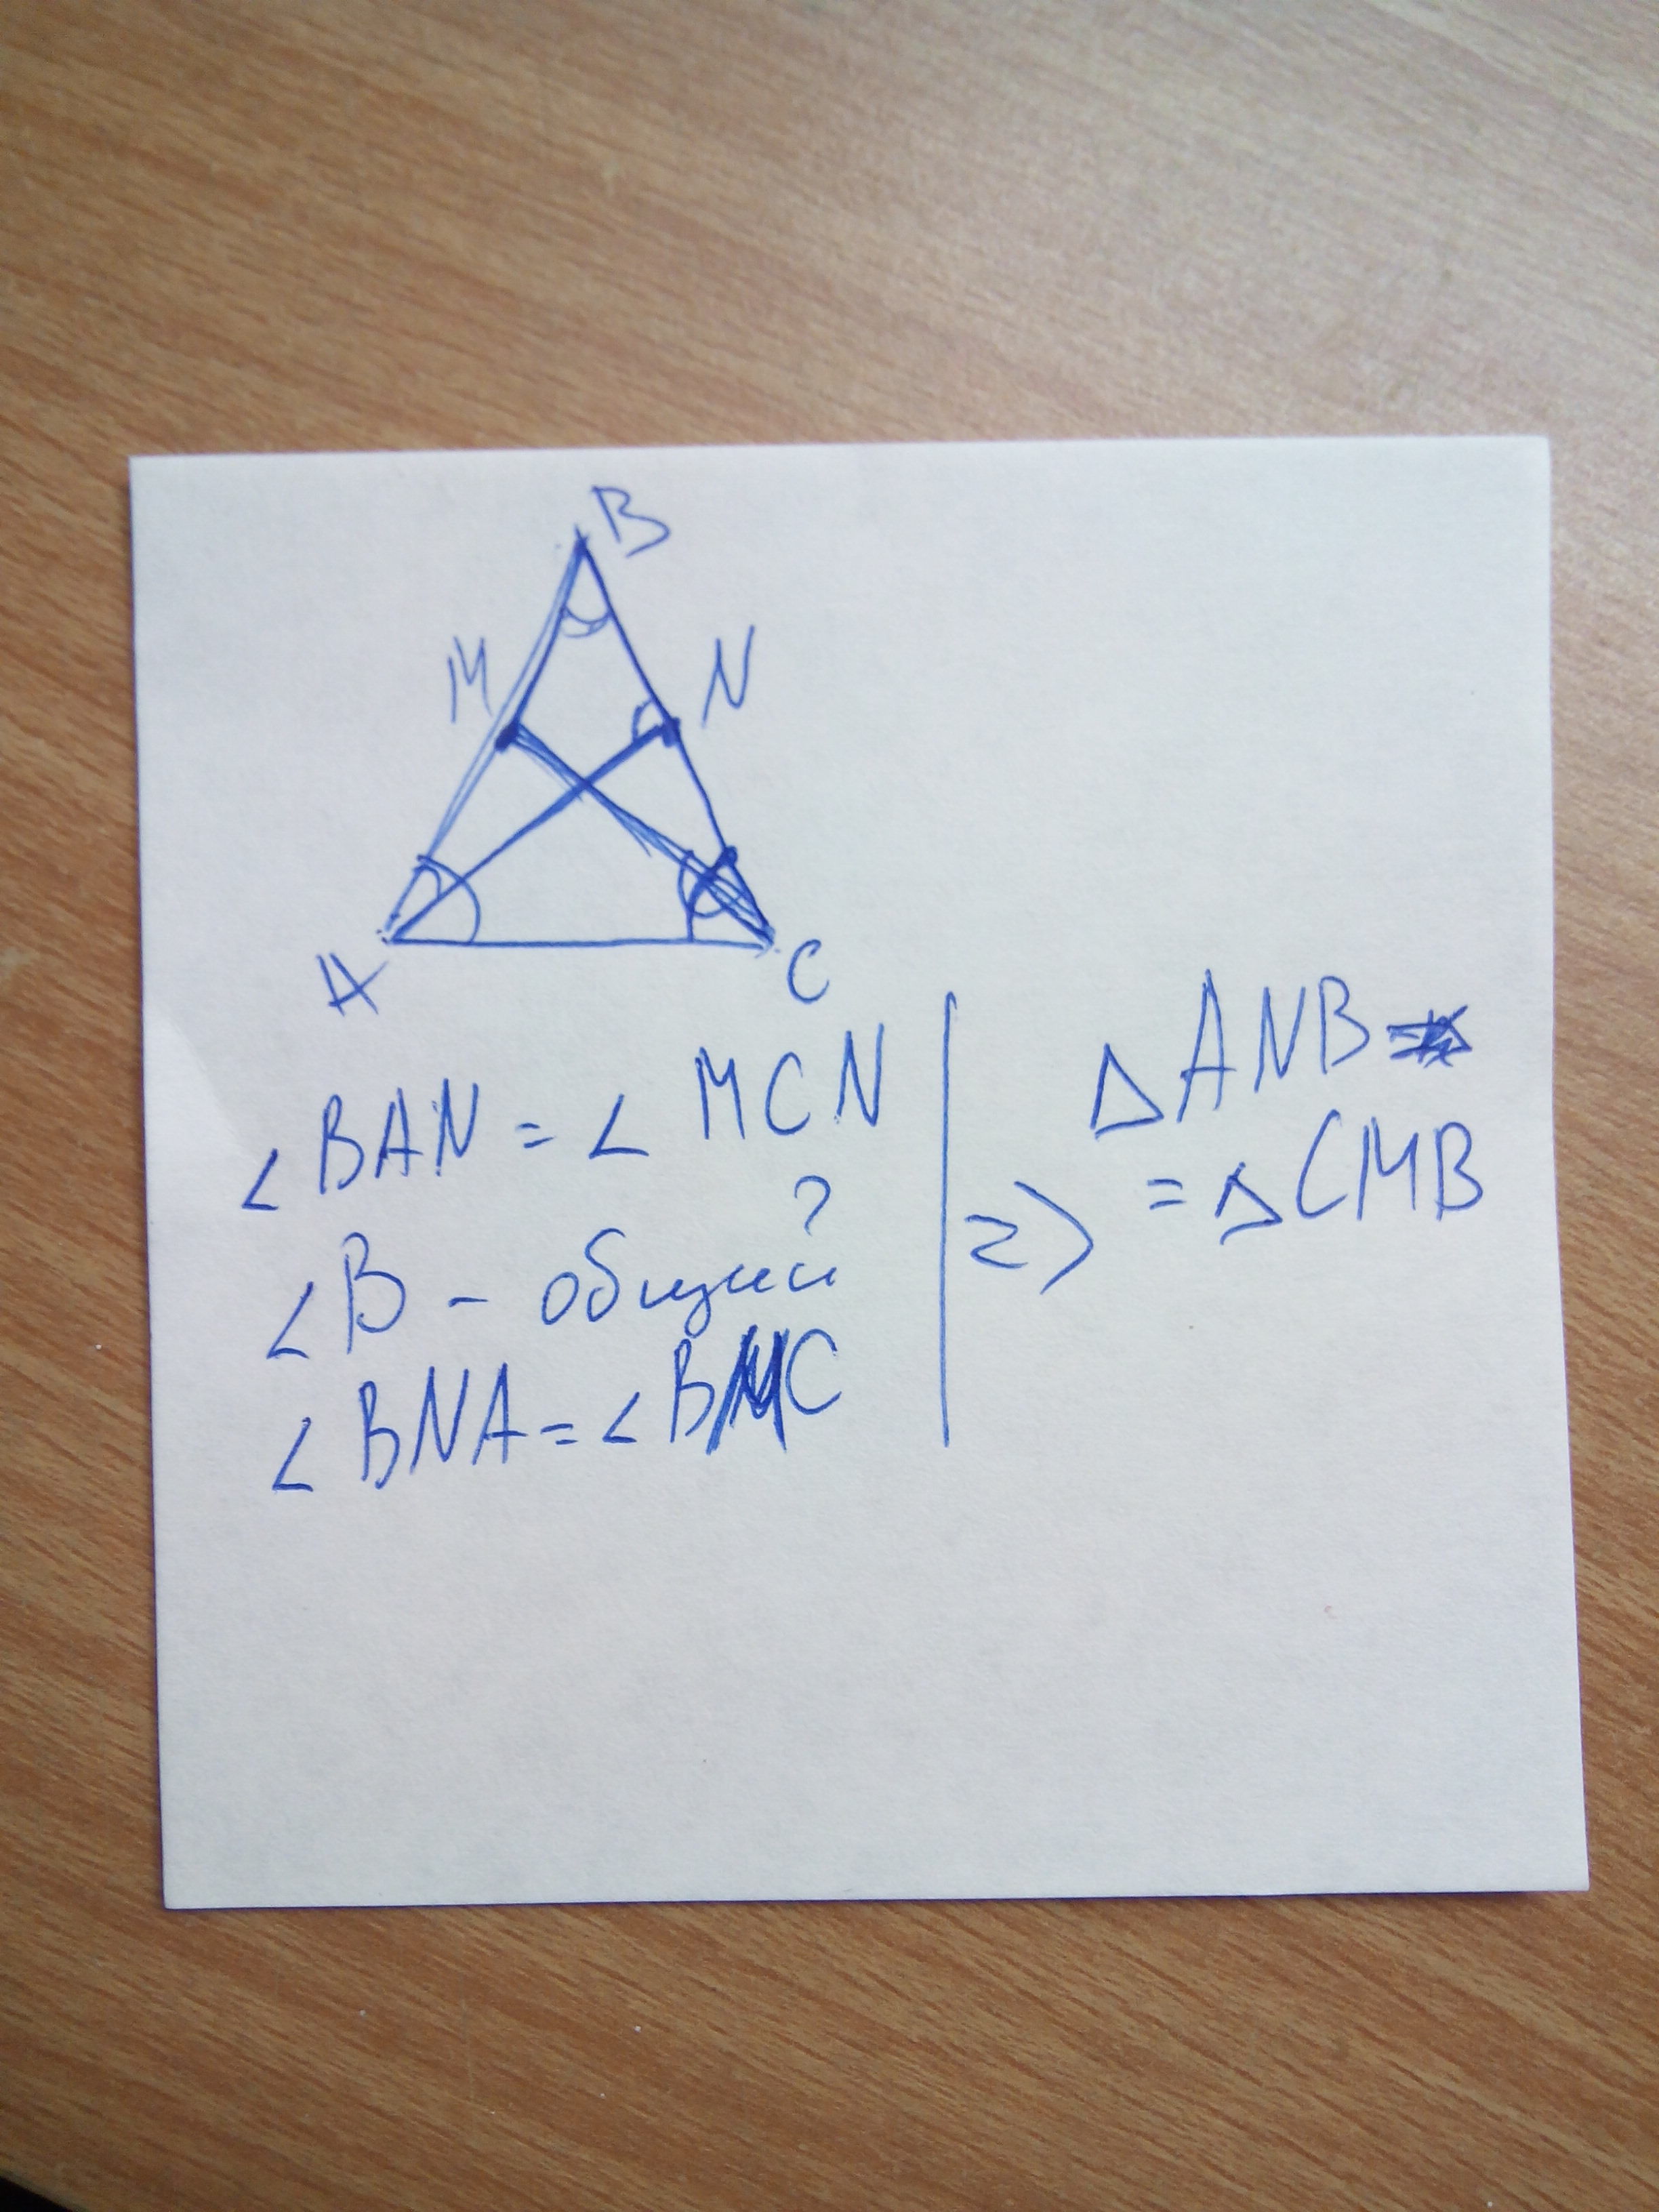 B
M N
A C
∠BAN = ∠MCN
∠B - общий?
∠BNA = ∠BMC
=>
△ANB
= △CMB